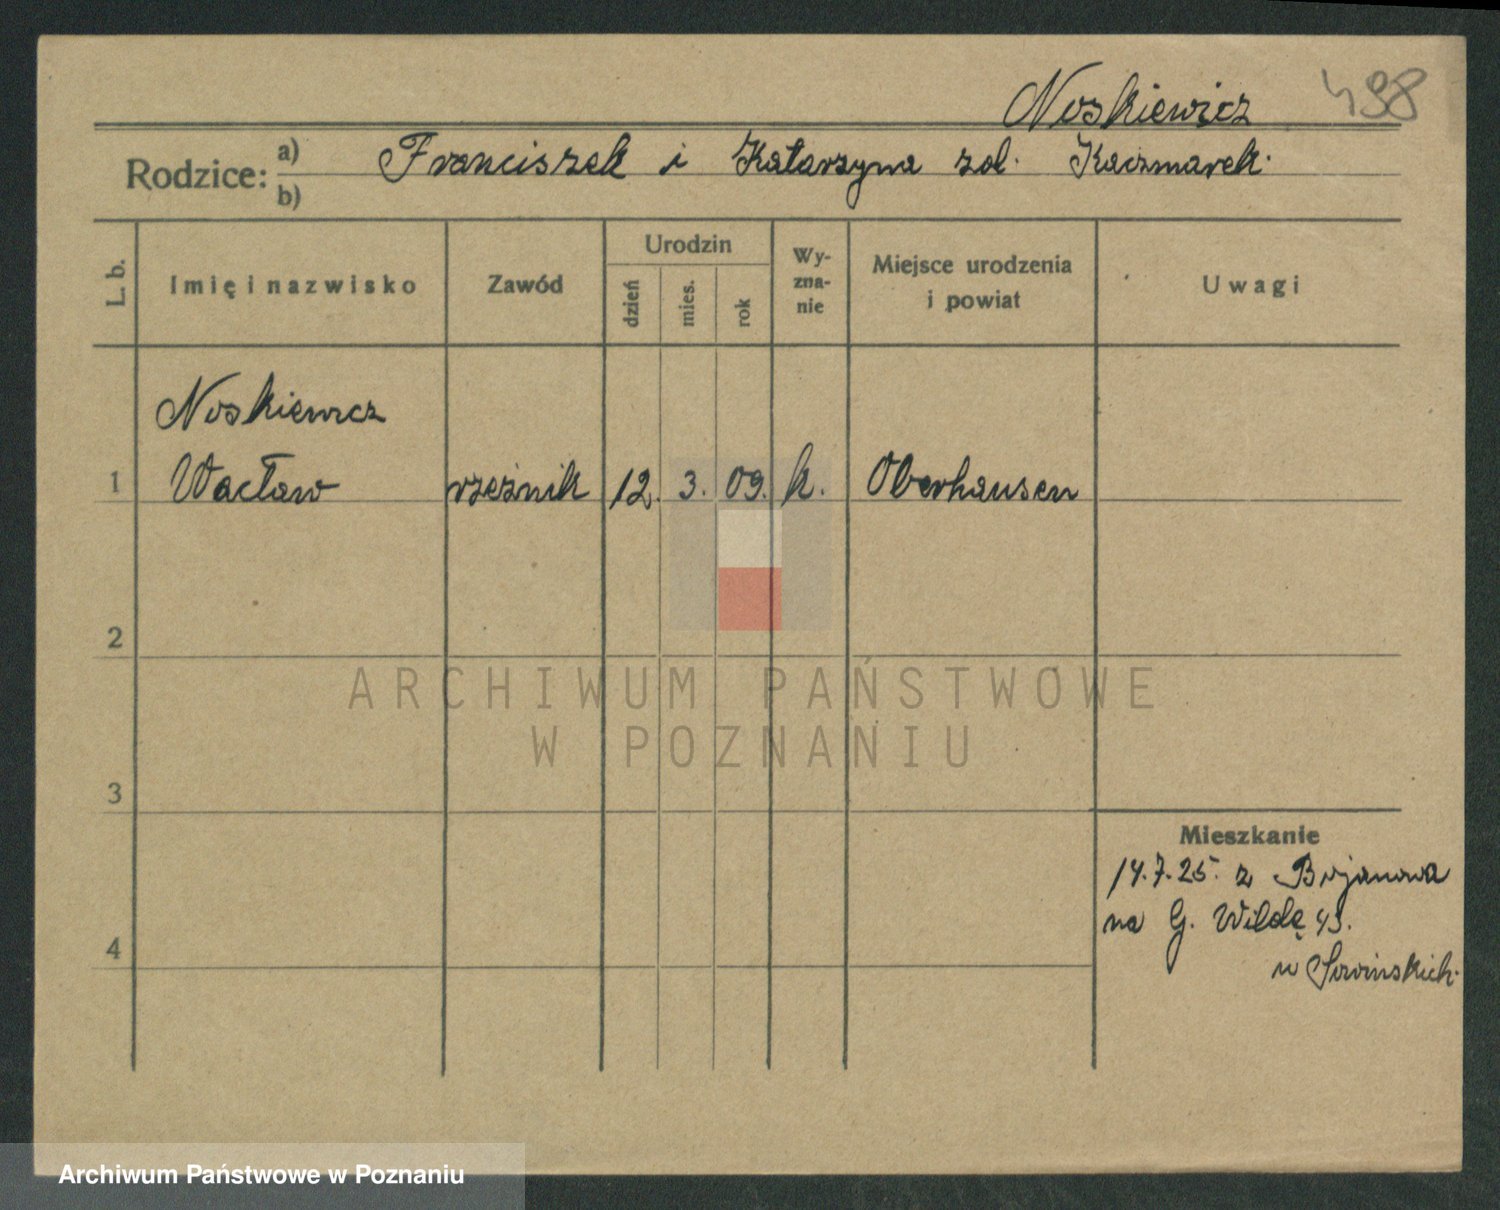 Noskiewicz 498
Rodzice: a) Franciszek i Katarzyna zd. Kaczmarek.
b)
L. b. Imię i nazwisko Zawód Urodzin dzień mies. rok Wy-zna-nie Miejsce urodzenia i powiat Uwagi
Noskiewicz
1 Wacław rzeźnik 12. 3. 09. k. Oberhausen
2
ARCHIWUM PAŃSTWOWE
W POZNANIU
3
Mieszkanie
14.7.25. z Bojanowa
na G. Wildę 43.
4
u Sowińskich.
Archiwum Państwowe w Poznaniu